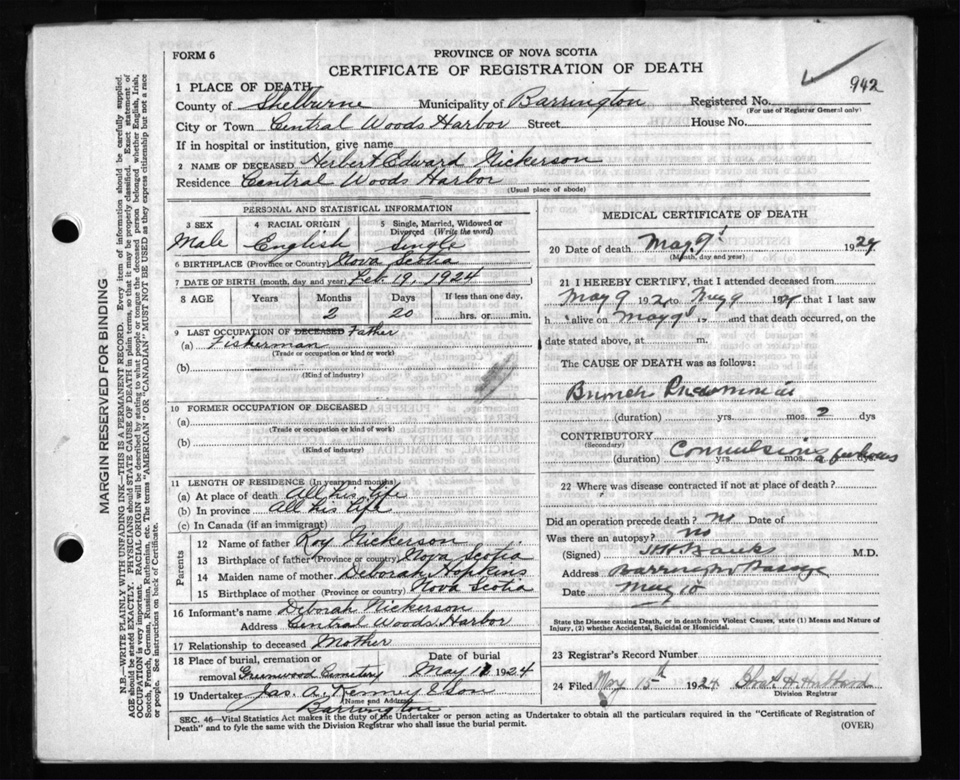 FORM 6
PROVINCE OF NOVA SCOTIA
CERTIFICATE OF REGISTRATION OF DEATH
942
1 PLACE OF DEATH
County of Shelburne Municipality of Barrington Registered No.
(For use of Registrar General only)
City or Town Central Woods Harbor Street House No.
If in hospital or institution, give name
2 NAME OF DECEASED Herbert Edward Nickerson
Residence Central Woods Harbor
(Usual place of abode)
PERSONAL AND STATISTICAL INFORMATION
3 SEX 4 RACIAL ORIGIN 5 Single, Married, Widowed or Divorced (Write the word)
Male English Single
6 BIRTHPLACE (Province or Country) Nova Scotia
7 DATE OF BIRTH (month, day and year) Feb. 19, 1924
8 AGE Years Months Days If less than one day,
2 20 hrs. or min.
9 LAST OCCUPATION OF DECEASED Father
(a) Fisherman
(Trade or occupation or kind or work)
(b)
(Kind of industry)
10 FORMER OCCUPATION OF DECEASED
(a)
(Trade or occupation or kind of work)
(b)
(Kind of industry)
11 LENGTH OF RESIDENCE (In years and months)
(a) At place of death All his life
(b) In province All his life
(c) In Canada (if an immigrant)
Parents
12 Name of father Roy Nickerson
13 Birthplace of father (Province or country) Nova Scotia
14 Maiden name of mother Deborah Hopkins
15 Birthplace of mother (Province or country) Nova Scotia
16 Informant's name Deborah Nickerson
Address Central Woods Harbor
17 Relationship to deceased Mother
18 Place of burial, cremation or removal Greenwood Cemetery Date of burial May 11 1924
19 Undertaker Jas. A. Kenney & Son
(Name and Address)
Barrington
MEDICAL CERTIFICATE OF DEATH
20 Date of death May 9 1924
(Month, day and year)
21 I HEREBY CERTIFY, that I attended deceased from
May 9 192 to May 9 1924 that I last saw
h alive on May 9 19 and that death occurred, on the
date stated above, at m.
The CAUSE OF DEATH was as follows:
Bronch Pneumonia
(duration) yrs. mos. 2 dys
CONTRIBUTORY
(Secondary)
Convulsions
(duration) yrs. mos. a few hours
22 Where was disease contracted if not at place of death?
Did an operation precede death? no Date of
Was there an autopsy? no
(Signed) Banks M.D.
Address Barrington Passage
Date May 10
State the Disease causing Death, or in death from Violent Causes, state (1) Means and Nature of
Injury, (2) whether Accidental, Suicidal or Homicidal.
23 Registrar's Record Number
24 Filed May 15th 1924 H. Hubbard
Division Registrar
SEC. 46—Vital Statistics Act makes it the duty of the Undertaker or person acting as Undertaker to obtain all the particulars required in the "Certificate of Registration of
Death" and to fyle the same with the Division Registrar who shall issue the burial permit.
(OVER)
MARGIN RESERVED FOR BINDING
N.B.—WRITE PLAINLY WITH UNFADING INK—THIS IS A PERMANENT RECORD. Every item of information should be carefully supplied.
AGE should be stated EXACTLY. PHYSICIANS should STATE CAUSE OF DEATH in plain terms, so that it may be properly classified. Exact statement of
OCCUPATION is very important. RACIAL ORIGIN will be described by stating to what people or tongue the deceased person belonged whether English, Irish,
Scotch, French, German, Russian, Ruthenian, etc. The terms "AMERICAN" OR "CANADIAN" MUST NOT BE USED as they express citizenship but not a race
or people. See instructions on back of Certificate.